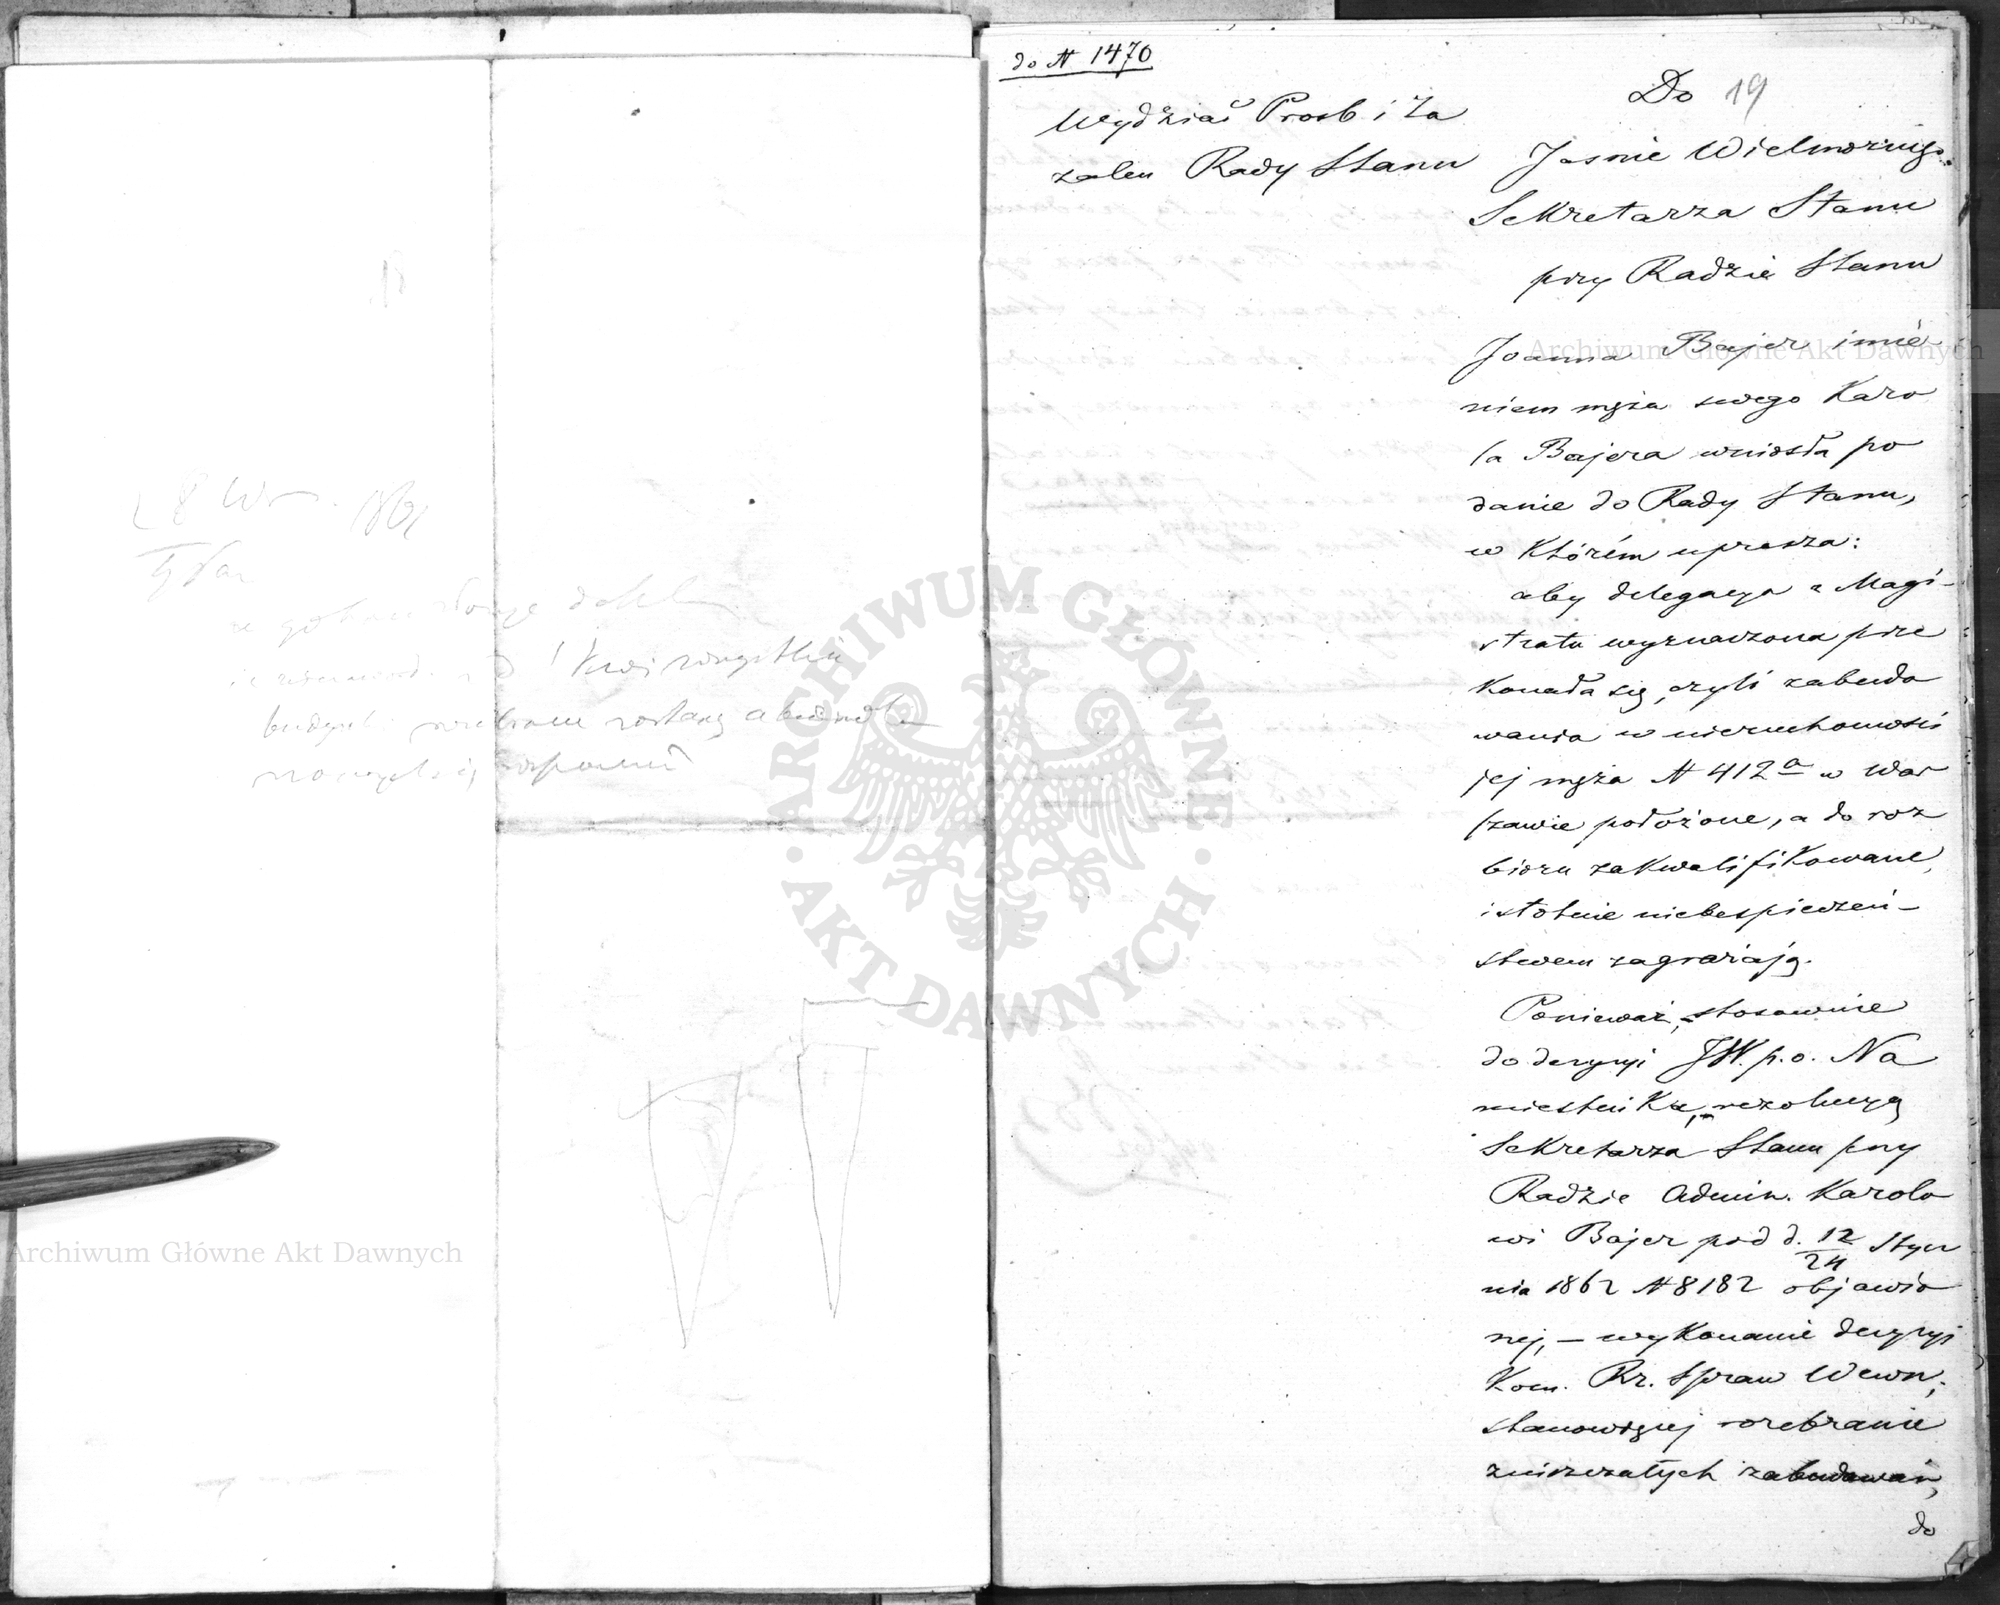 18
1861
do N 1470
Wydział Prosb i Za
zalen Rady Stanu
Do 19
Jasnie Wielmożnego
Sekretarza Stanu
przy Radzie Stanu
Joanna Bajer imie
niem męża swego Karo
la Bajera wniosła po
danie do Rady Stanu,
w którém uprasza:
aby delegacya z Magi-
stratu wyznaczona prze
konała się, czyli zabudo
wania w nieruchomości
jej męża N 412a w War
szawie położone, a do roz
bioru zakwalifikowane,
istotnie niebespieczeń-
stwem zagrażają.
Ponieważ, stosownie
do decyzyi JW. p.o. Na
miestnika, rezolucyą
Sekretarza Stanu przy
Radzie Admin. Karolo
wi Bajer pod d. 12/24 Stycz
nia 1862 N 8182 objawio
nej, — wykonanie decyzyi
Kom. Rz. Spraw Wewn,
stanowiącej rozebranie
zniszczałych zabudowań,
do
Archiwum Główne Akt Dawnych
Archiwum Główne Akt Dawnych
ARCHIWUM GŁÓWNE
AKT DAWNYCH